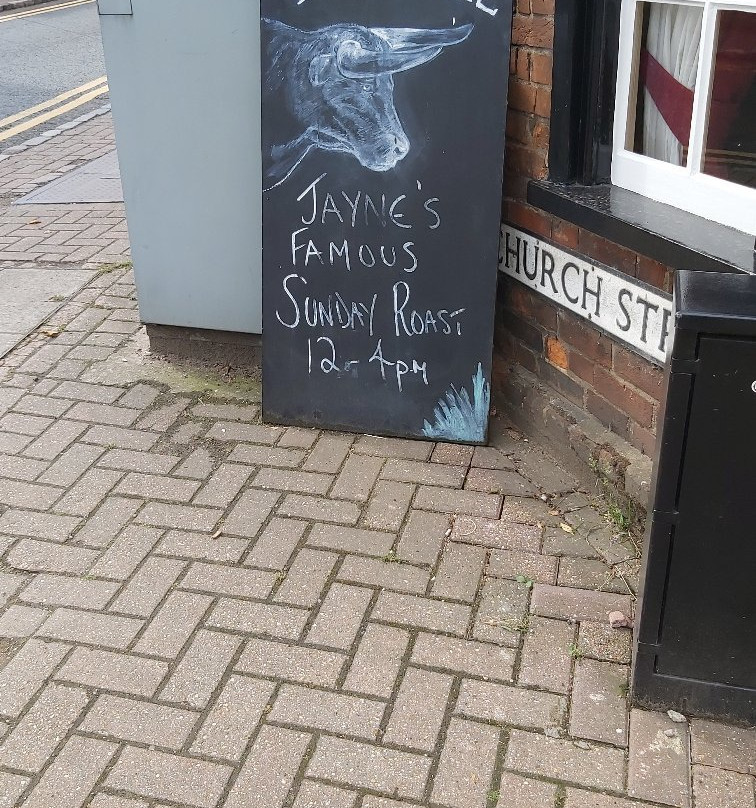 JAYNE'S
FAMOUS
SUNDAY ROAST
12-4pm
CHURCH STR